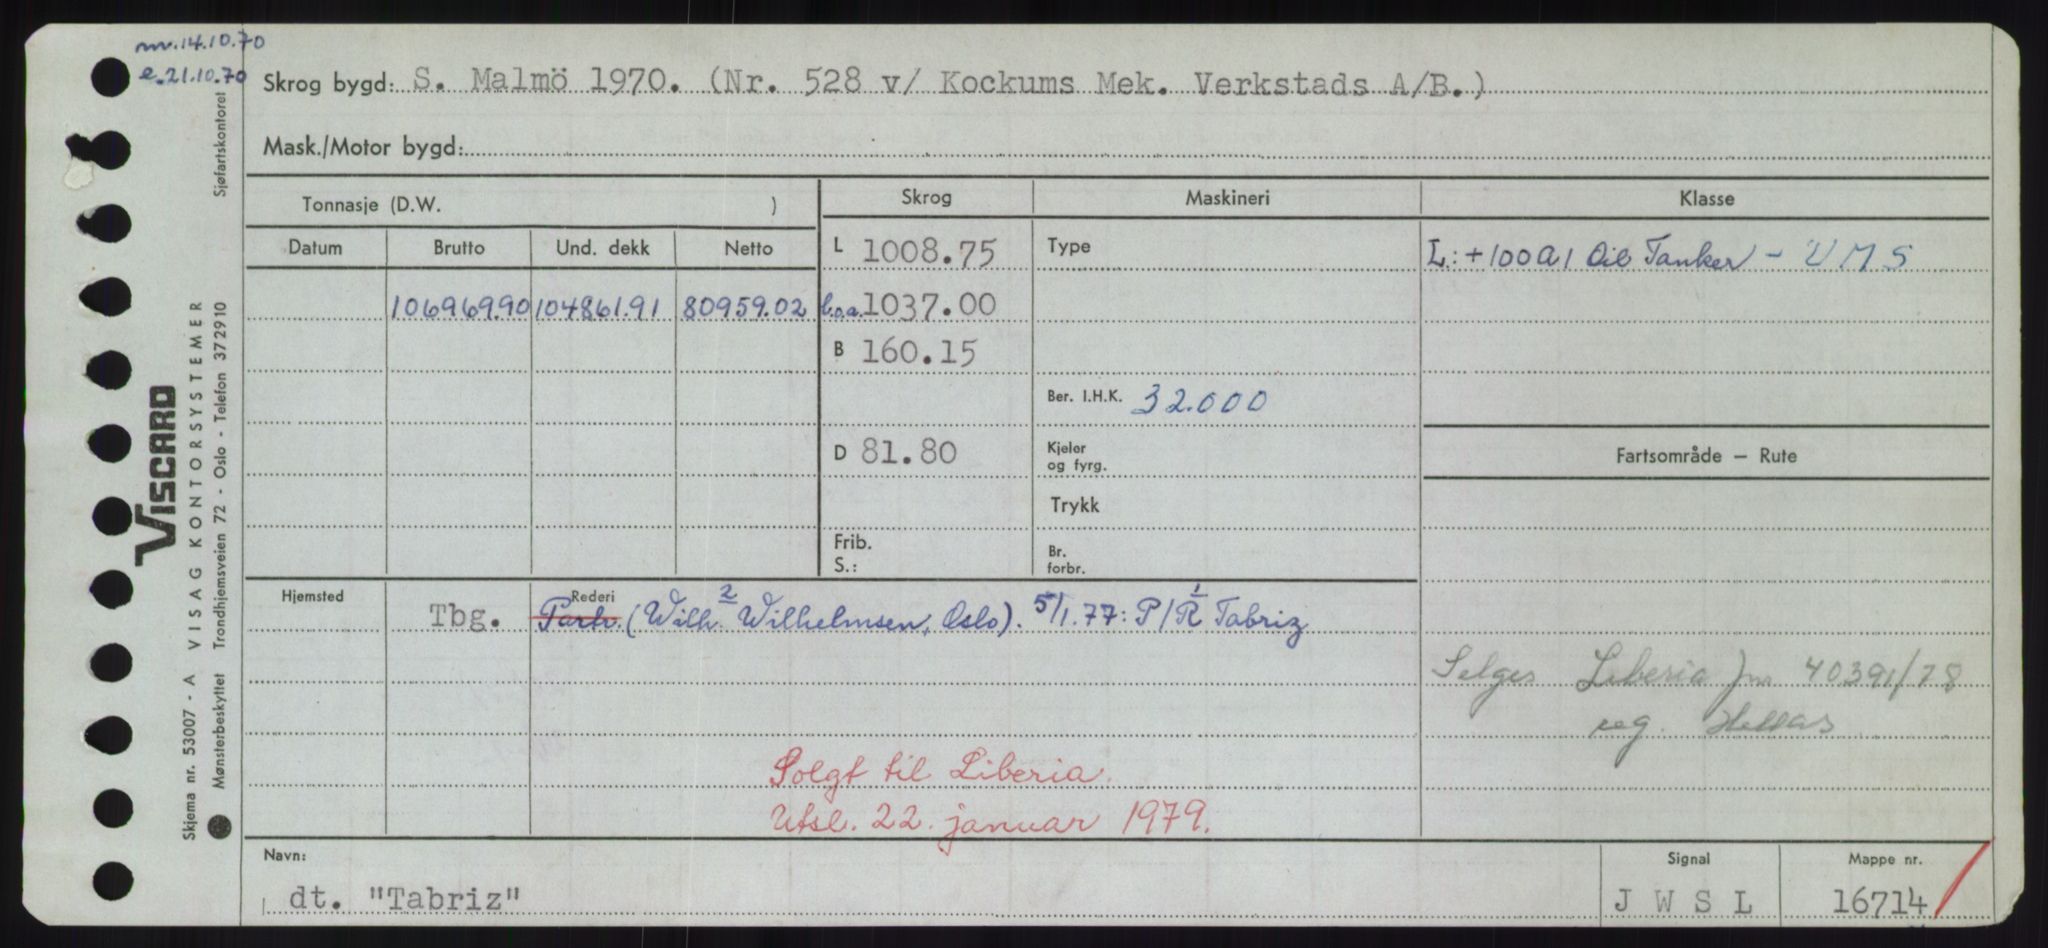 nv. 14.10.70
e. 21.10.70
Skrog bygd: S. Malmö 1970. (Nr. 528 v/ Kockums Mek. Verkstads A/B.)
Mask./Motor bygd:
Tonnasje (D.W. )
Skrog
Maskineri
Klasse
Datum
Brutto
Und. dekk
Netto
L 1008.75
Type
L: + 100 A 1 Oil Tanker - UMS
106969.90
104861.91
80959.02
l.o.a. 1037.00
B 160.15
Ber. I.H.K. 32.000
D 81.80
Kjeler
og fyrg.
Fartsområde — Rute
Trykk
Frib.
S.:
Br.
forbr.
Hjemsted
Tbg.
Rederi
Partr. (Wilh. 2 Wilhelmsen, Oslo). 5/1.77: P/R 1 Tabriz
Selges Liberia jnr 40391/78
reg. Hellas
Solgt til Liberia.
Utsl. 22. januar 1979.
Navn:
dt. "Tabriz"
Signal
J W S L
Mappe nr.
16714
VISCARD
VISAG KONTORSYSTEMER
Skjema nr. 53007 - A
Sjøfartskontoret
Mønsterbeskyttet Trondhjemsveien 72 - Oslo - Telefon 372910